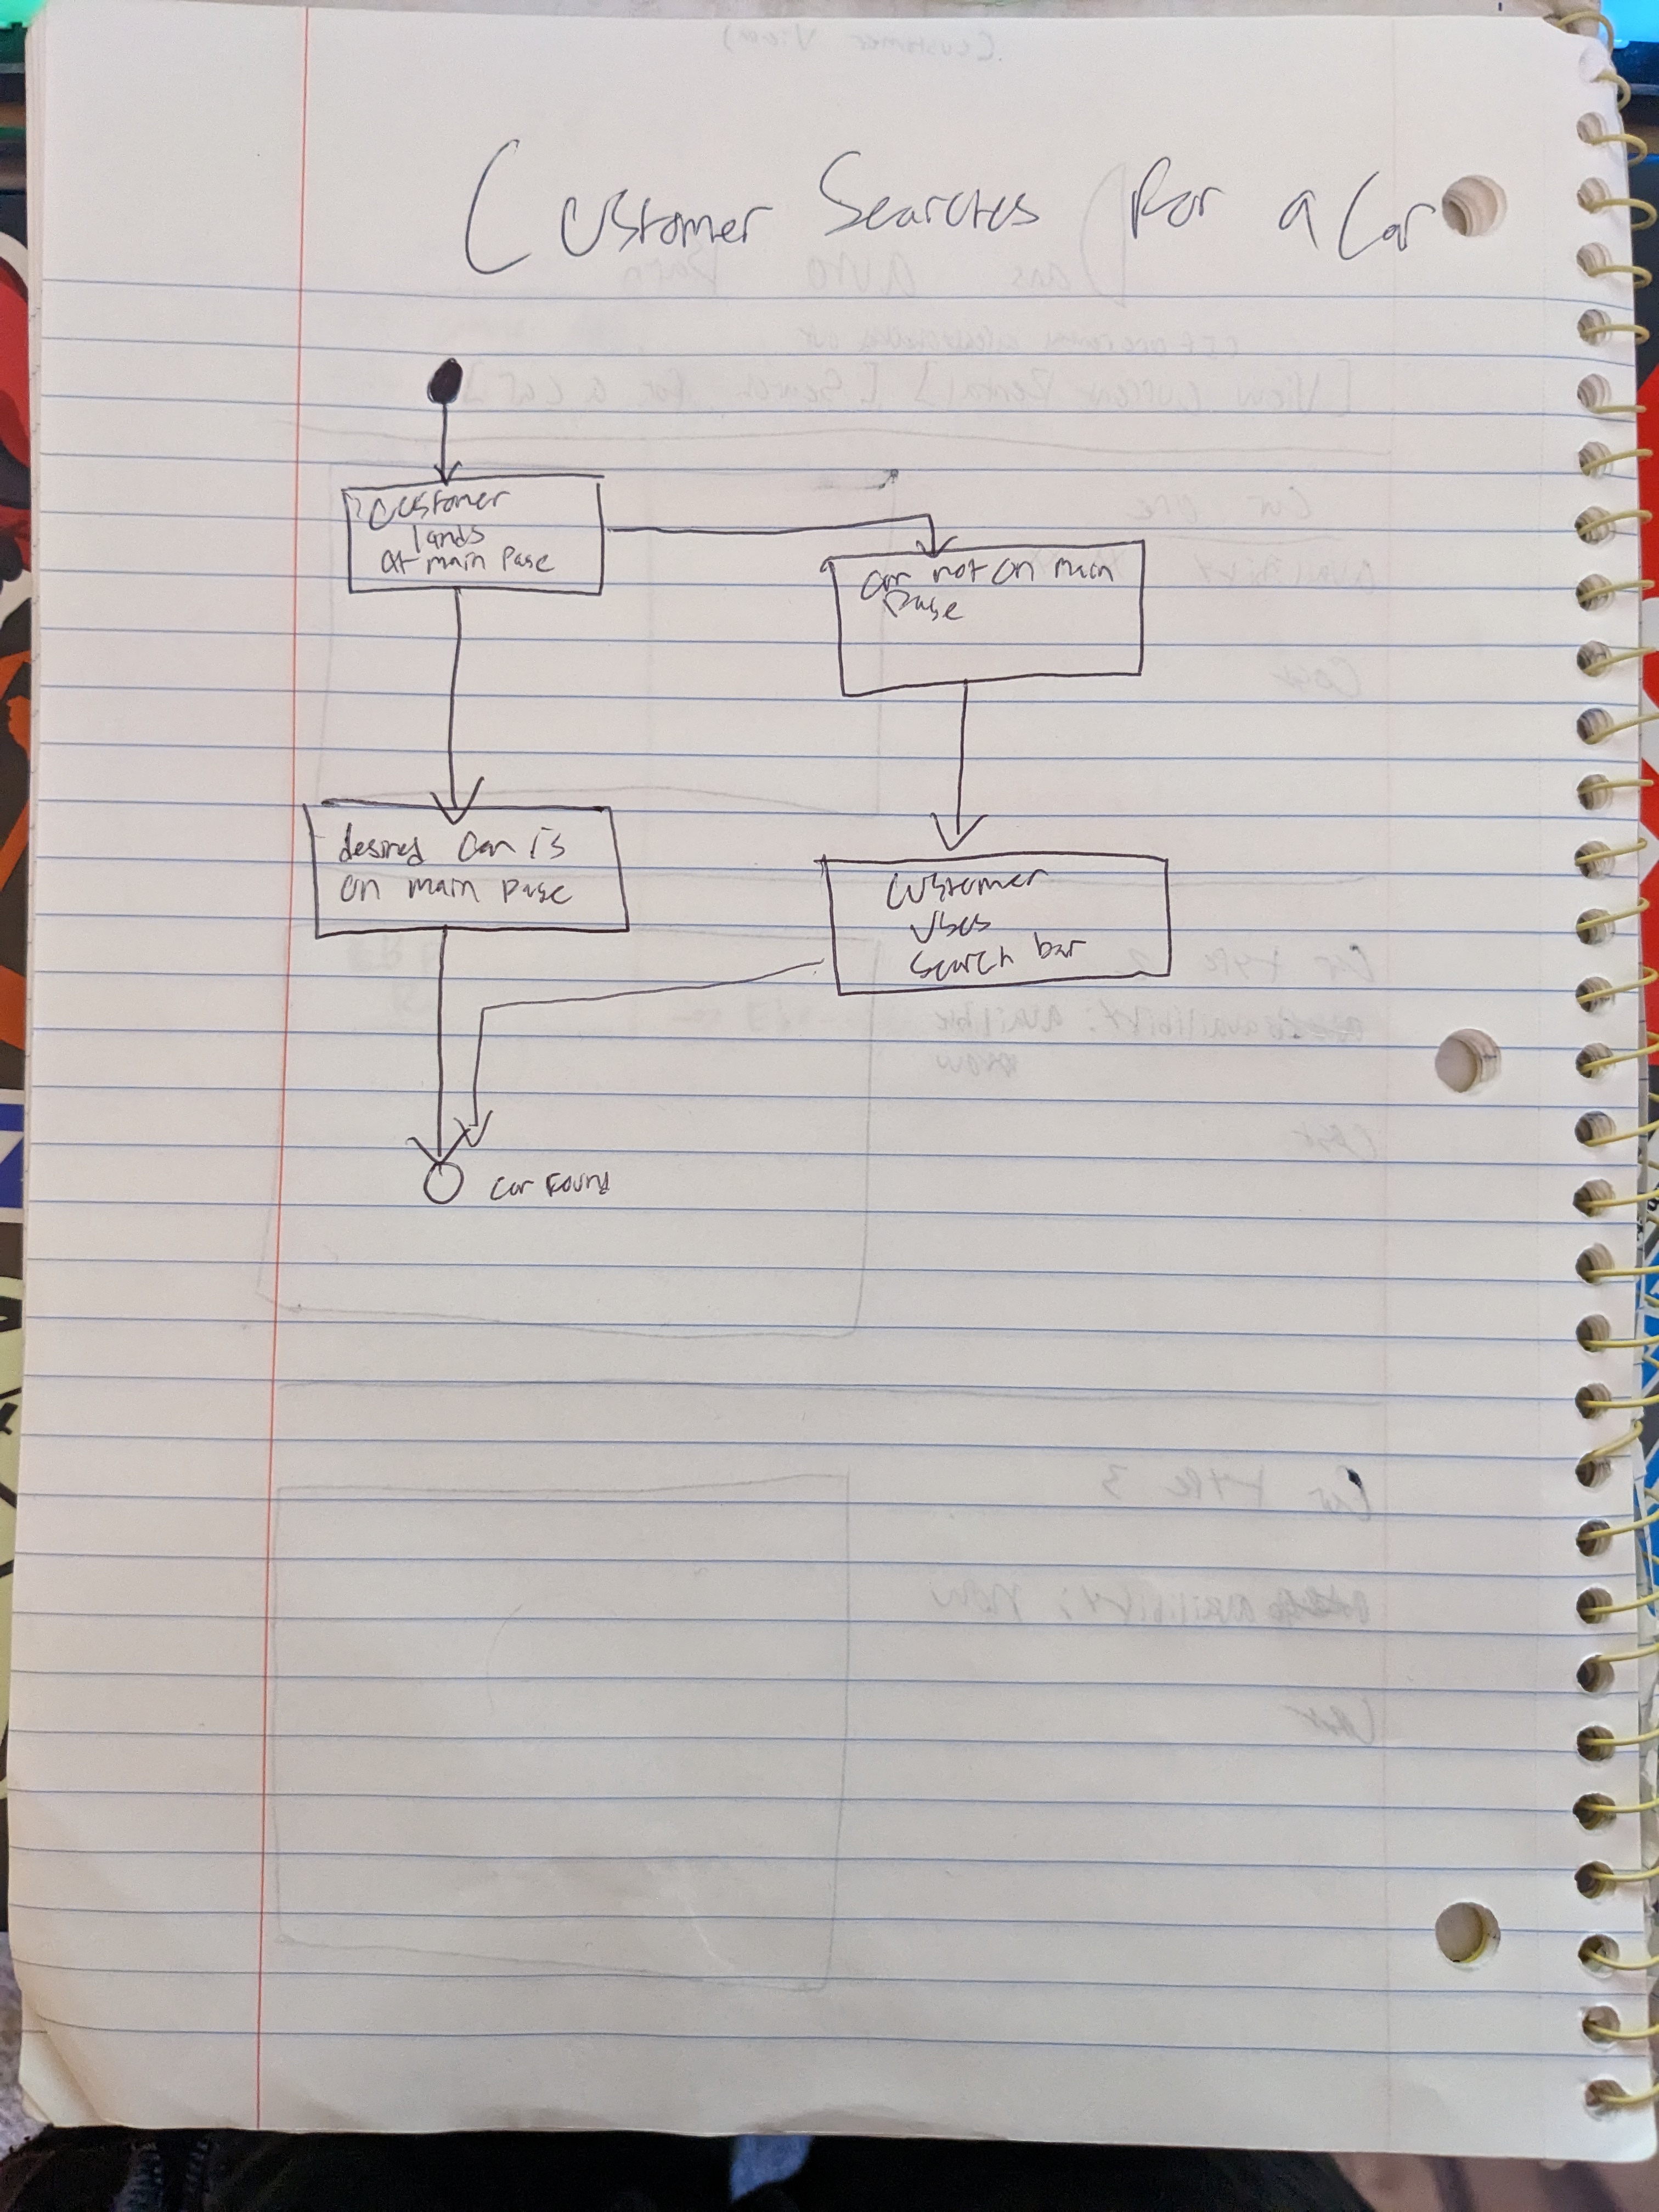 Customer Searches for a Car
Customer
lands
at main page
car not on main
page
desired car is
on main page
customer
uses
search bar
car found